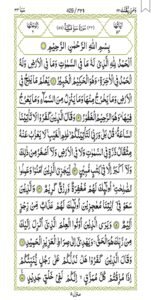 سُوْرَةُ سَبَاٍ مَكِّيَّةٌ
بِسْمِ اللّٰهِ الرَّحْمٰنِ الرَّحِيْمِ
اَلْحَمْدُ لِلّٰهِ الَّذِيْ لَهٗ مَا فِي السَّمٰوٰتِ وَمَا فِي الْاَرْضِ وَلَهُ
الْحَمْدُ فِي الْاٰخِرَةِ وَهُوَ الْحَكِيْمُ الْخَبِيْرُ يَعْلَمُ مَا يَلِجُ فِي
الْاَرْضِ وَمَا يَخْرُجُ مِنْهَا وَمَا يَنْزِلُ مِنَ السَّمَآءِ وَمَا يَعْرُجُ
فِيْهَا وَهُوَ الرَّحِيْمُ الْغَفُوْرُ وَقَالَ الَّذِيْنَ كَفَرُوْا لَا تَاْتِيْنَا
السَّاعَةُ قُلْ بَلٰى وَرَبِّيْ لَتَاْتِيَنَّكُمْ عٰلِمِ الْغَيْبِ لَا يَعْزُبُ عَنْهُ
مِثْقَالُ ذَرَّةٍ فِي السَّمٰوٰتِ وَلَا فِي الْاَرْضِ وَلَا اَصْغَرُ مِنْ ذٰلِكَ
وَلَا اَكْبَرُ اِلَّا فِيْ كِتٰبٍ مُّبِيْنٍ لِّيَجْزِيَ الَّذِيْنَ اٰمَنُوْا وَعَمِلُوا
الصّٰلِحٰتِ اُولٰٓئِكَ لَهُمْ مَّغْفِرَةٌ وَّرِزْقٌ كَرِيْمٌ وَالَّذِيْنَ
سَعَوْ فِيْٓ اٰيٰتِنَا مُعٰجِزِيْنَ اُولٰٓئِكَ لَهُمْ عَذَابٌ مِّنْ رِّجْزٍ
اَلِيْمٌ وَيَرَى الَّذِيْنَ اُوْتُوا الْعِلْمَ الَّذِيْٓ اُنْزِلَ اِلَيْكَ
مِنْ رَّبِّكَ هُوَ الْحَقَّ وَيَهْدِيْٓ اِلٰى صِرَاطِ الْعَزِيْزِ الْحَمِيْدِ
وَقَالَ الَّذِيْنَ كَفَرُوْا هَلْ نَدُلُّكُمْ عَلٰى رَجُلٍ يُّنَبِّئُكُمْ
اِذَا مُزِّقْتُمْ كُلَّ مُمَزَّقٍ اِنَّكُمْ لَفِيْ خَلْقٍ جَدِيْدٍ